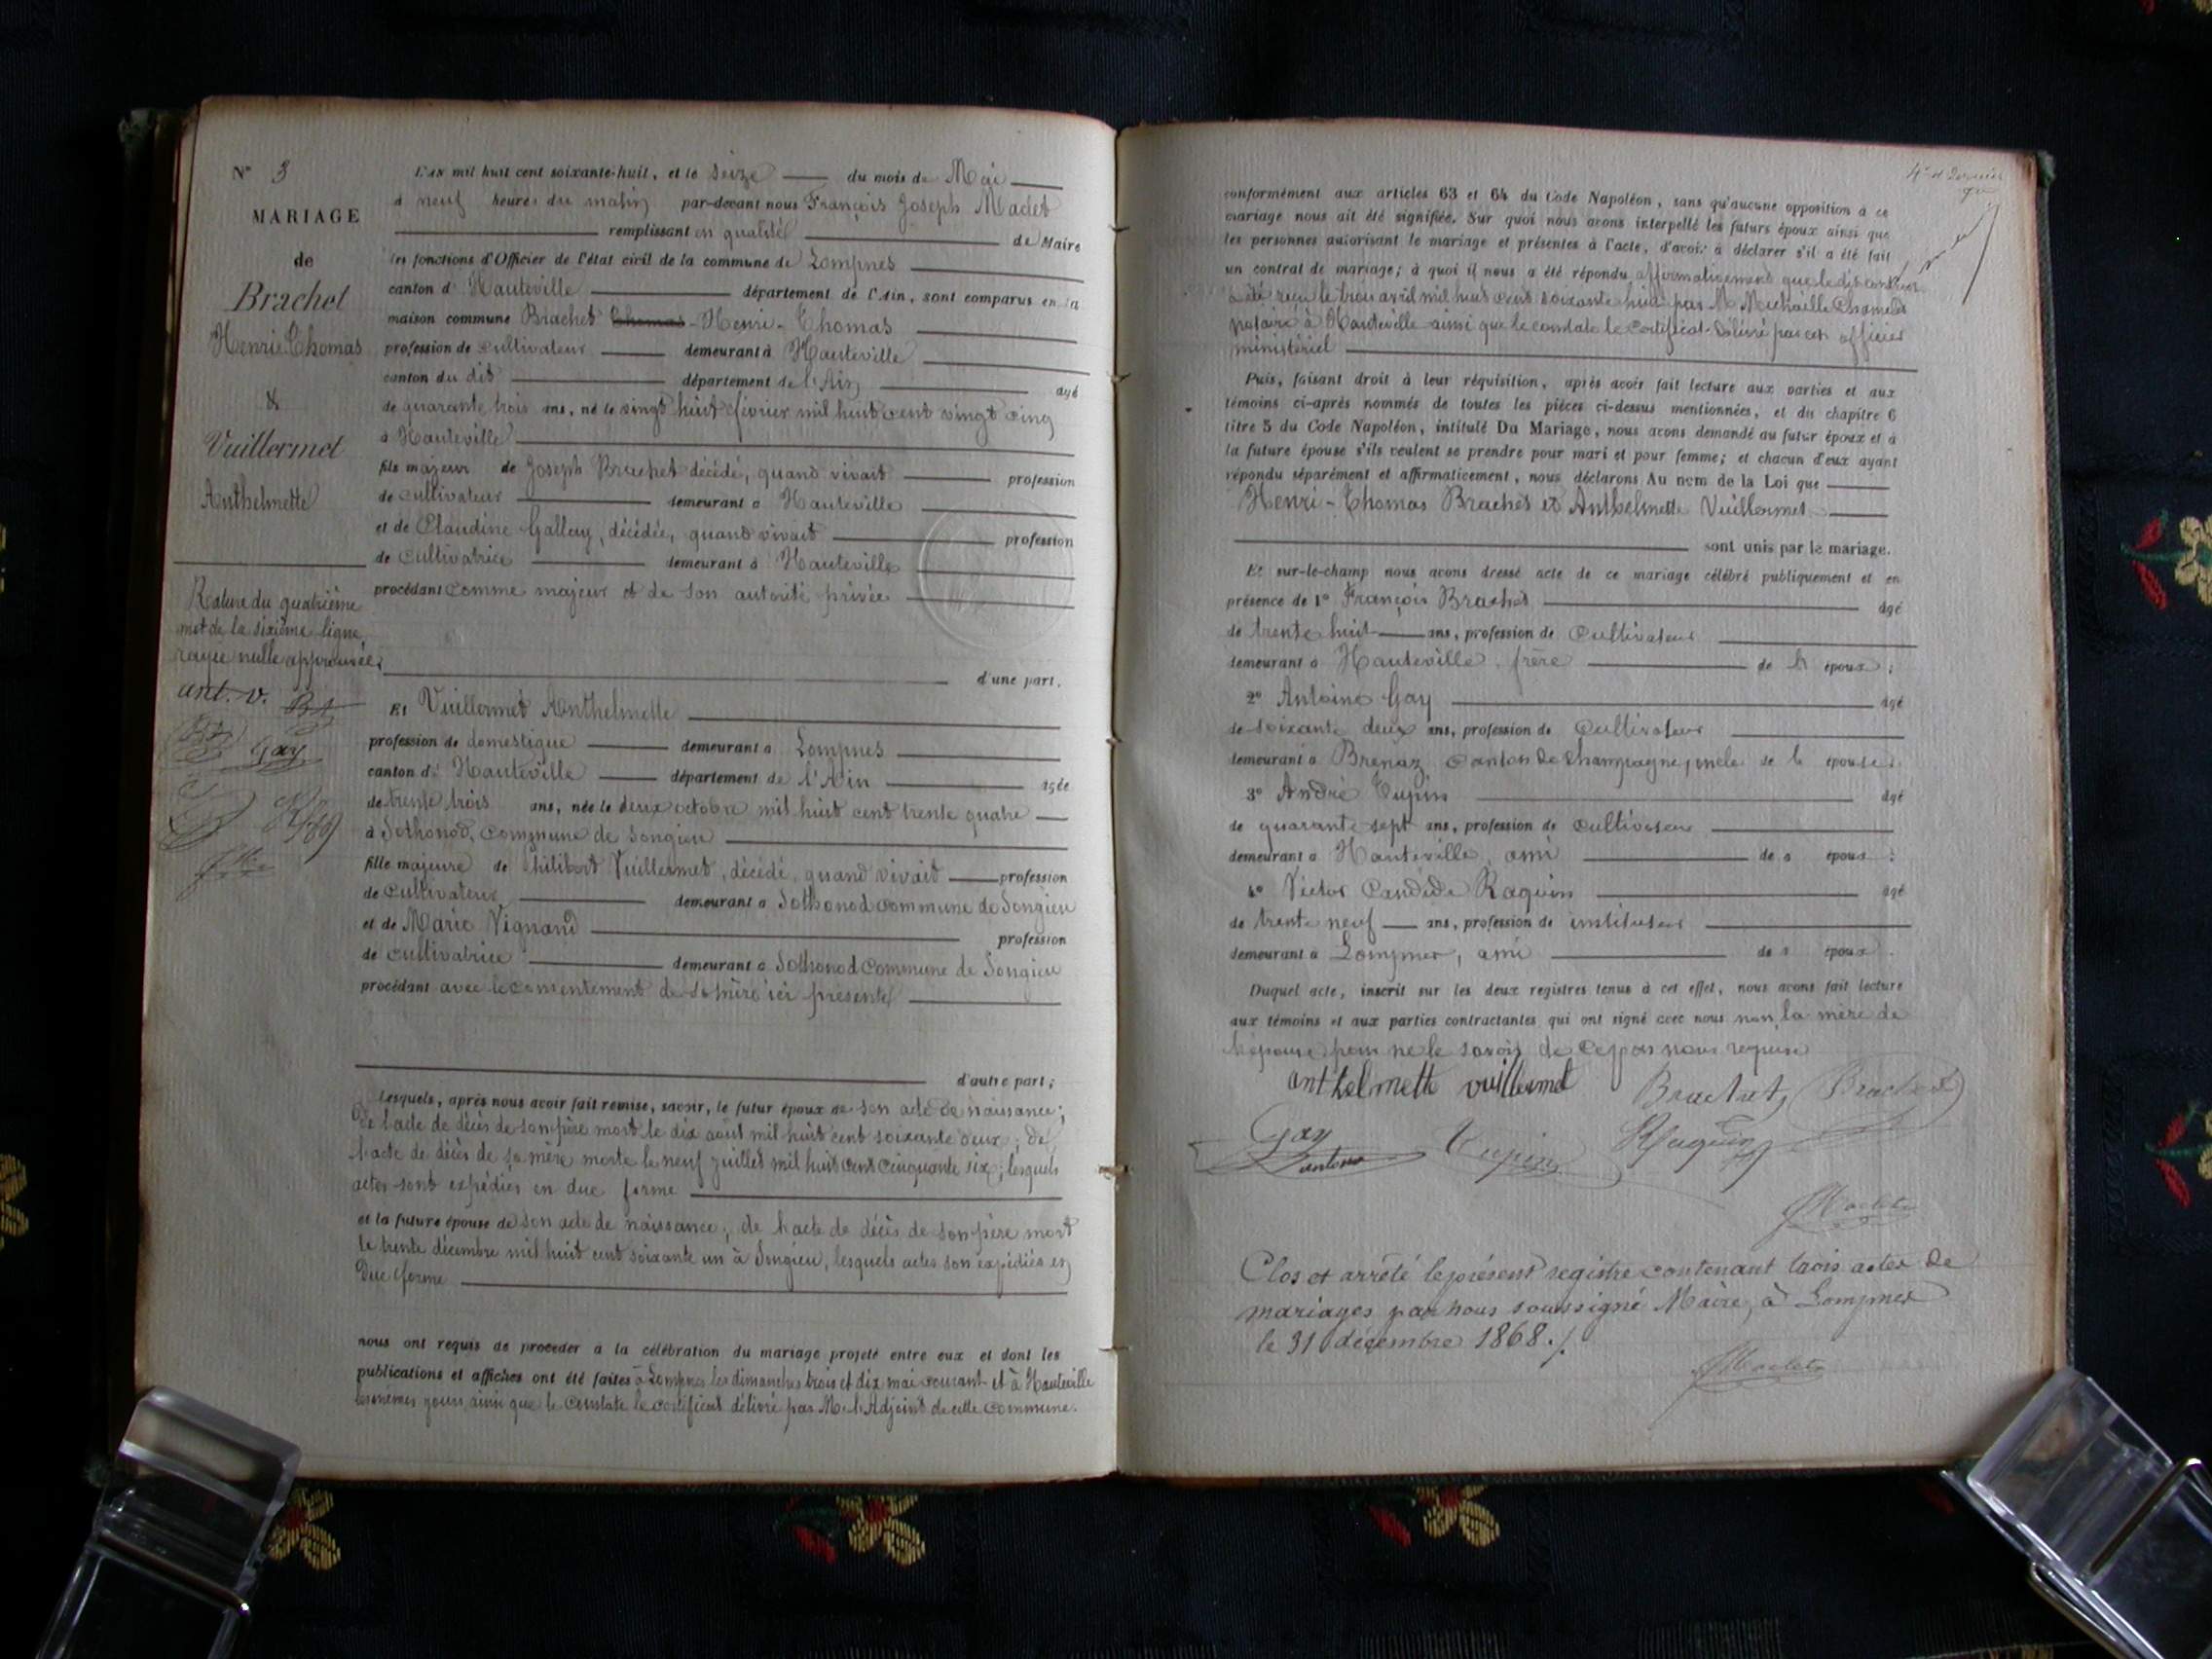 N° 3
MARIAGE
de
Brachet
Henri Thomas
&
Vuillermet
Anthelmette
Rature du quatrième
mot de la sixième ligne
rayée nulle approuvée.
ant. v.
Gay
L'an mil huit cent soixante-huit, et le seize du mois de Mai
à neuf heures du matin par-devant nous François Joseph Maclet
remplissant en qualité de Maire
les fonctions d'Officier de l'état civil de la commune de Lompnes
canton d' Hauteville département de l'Ain, sont comparus en la
maison commune Brachet Thomas - Henri - Thomas
profession de cultivateur demeurant à Hauteville
canton du dit département de l'Ain âgé
de quarante trois ans, né le vingt huit février mil huit cent vingt cinq
à Hauteville
fils majeur de Joseph Brachet décédé, quand vivait profession
de cultivateur demeurant à Hauteville
et de Claudine Gallay, décédée, quand vivait profession
de cultivatrice demeurant à Hauteville
procédant comme majeur et de son autorité privée
d'une part.
Et Vuillermet Anthelmette
profession de domestique demeurant à Lompnes
canton d' Hauteville département de l'Ain âgée
de trente trois ans, née le deux octobre mil huit cent trente quatre
à Sothonod, commune de Songieu
fille majeure de Philibert Vuillermet, décédé, quand vivait profession
de cultivateur demeurant à Sothonod commune de Songieu
et de Marie Vignand profession
de cultivatrice demeurant à Sothonod commune de Songieu
procédant avec le consentement de sa mère ici présente
d'autre part;
Lesquels, après nous avoir fait remise, savoir, le futur époux de son acte de naissance;
de l'acte de décès de son père mort le dix août mil huit cent soixante deux; de
l'acte de décès de sa mère morte le neuf juillet mil huit cent cinquante six; lesquels
actes sont expédiés en due forme
et la future épouse de son acte de naissance; de l'acte de décès de son père mort
le trente décembre mil huit cent soixante un à Songieu, lesquels actes son expédiés en
due forme
nous ont requis de procéder à la célébration du mariage projeté entre eux et dont les
publications et affiches ont été faites à Lompnes les dimanches trois et dix mai courant et à Hauteville
les mêmes jours, ainsi que le constate le certificat délivré par M. l'Adjoint de cette commune.
4e et dernier
conformément aux articles 63 et 64 du Code Napoléon, sans qu'aucune opposition à ce
mariage nous ait été signifiée. Sur quoi nous avons interpellé les futurs époux ainsi que
les personnes autorisant le mariage et présentes à l'acte, d'avoir à déclarer s'il a été fait
un contrat de mariage; à quoi il nous a été répondu affirmativement que le dit contrat
a été reçu le trois avril mil huit cent soixante huit par Me Michaille
notaire à Hauteville ainsi que le constate le certificat délivré par cet officier
ministériel
Puis, faisant droit à leur réquisition, après avoir fait lecture aux parties et aux
témoins ci-après nommés de toutes les pièces ci-dessus mentionnées, et du chapitre 6
titre 5 du Code Napoléon, intitulé Du Mariage, nous avons demandé au futur époux et à
la future épouse s'ils veulent se prendre pour mari et pour femme; et chacun d'eux ayant
répondu séparément et affirmativement, nous déclarons Au nom de la Loi que
Henri - Thomas Brachet et Anthelmette Vuillermet
sont unis par le mariage.
Et sur-le-champ nous avons dressé acte de ce mariage célébré publiquement et en
présence de 1° François Brachet âgé
de trente huit ans, profession de cultivateur
demeurant à Hauteville, frère de l' époux;
2° Antoine Gay âgé
de soixante deux ans, profession de cultivateur
demeurant à Brenaz canton de Champagne, oncle de l' épouse;
3° André Tupin âgé
de quarante sept ans, profession de cultivateur
demeurant à Hauteville, ami de s époux;
4° Victor Candide Raguin âgé
de trente neuf ans, profession de instituteur
demeurant à Lompnes, ami de s époux.
Duquel acte, inscrit sur les deux registres tenus à cet effet, nous avons fait lecture
aux témoins et aux parties contractantes qui ont signé avec nous non la mère de
l'épouse pour ne le savoir de ce par nous requise
anthelmette vuillermet Brachet Brachet
Gay antoine Tupin Raguin
Maclet
Clos et arrêté le présent registre contenant trois actes de
mariages par nous soussigné Maire, à Lompnes
le 31 décembre 1868./.
Maclet